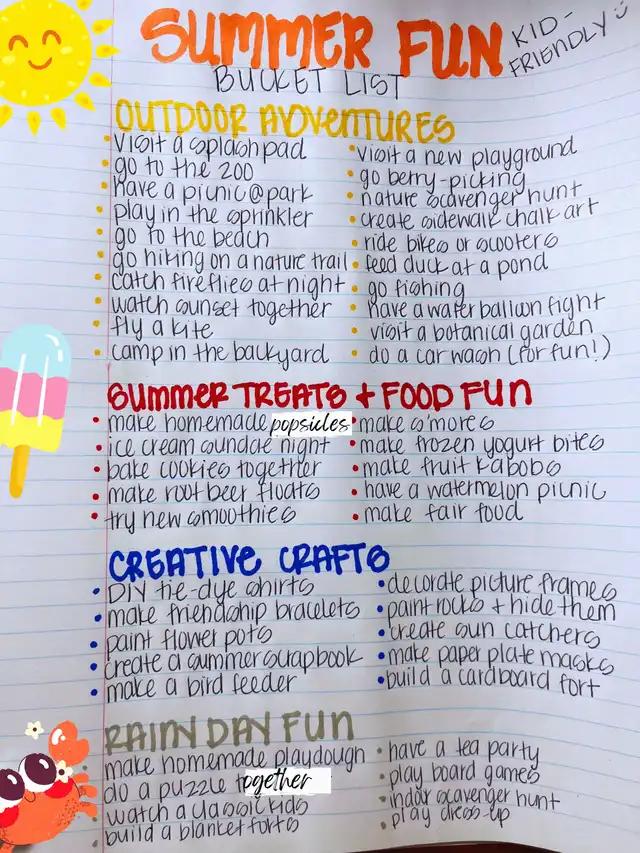 SUMMER FUN
KID-
FRIENDLY
BUCKET LIST
OUTDOOR ADVENTURES
visit a splashpad
go to the zoo
have a picnic @ park
play in the sprinkler
go to the beach
go hiking on a nature trail
catch fireflies at night
watch sunset together
fly a kite
camp in the backyard
visit a new playground
go berry-picking
nature scavenger hunt
create sidewalk chalk art
ride bikes or scooters
feed duck at a pond
go fishing
have a water balloon fight
visit a botanical garden
do a car wash (for fun!)
SUMMER TREATS + FOOD FUN
make homemade popsicles
ice cream sundae night
bake cookies together
make root beer floats
try new smoothies
make s'mores
make frozen yogurt bites
make fruit kabobs
have a watermelon picnic
make fair food
CREATIVE CRAFTS
DIY tie-dye shirts
make friendship bracelets
paint flower pots
create a summer scrapbook
make a bird feeder
decorate picture frames
paint rocks + hide them
create sun catchers
make paper plate masks
build a cardboard fort
RAINY DAY FUN
make homemade playdough
do a puzzle together
watch a classic kids
build a blanket forts
have a tea party
play board games
indoor scavenger hunt
play dress-up